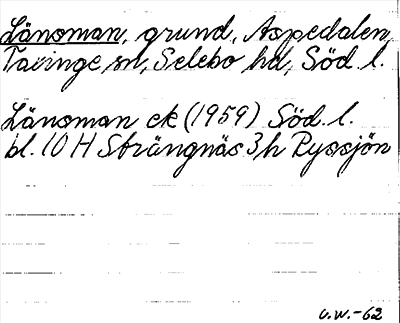 Länsman, grund, Aspedalen,
Taxinge sn, Selebo hd, Söd. l.
Länsman ek (1959) Söd. l.
bl. 10 H Strängnäs 3 h Ryssjön
U.W.-62